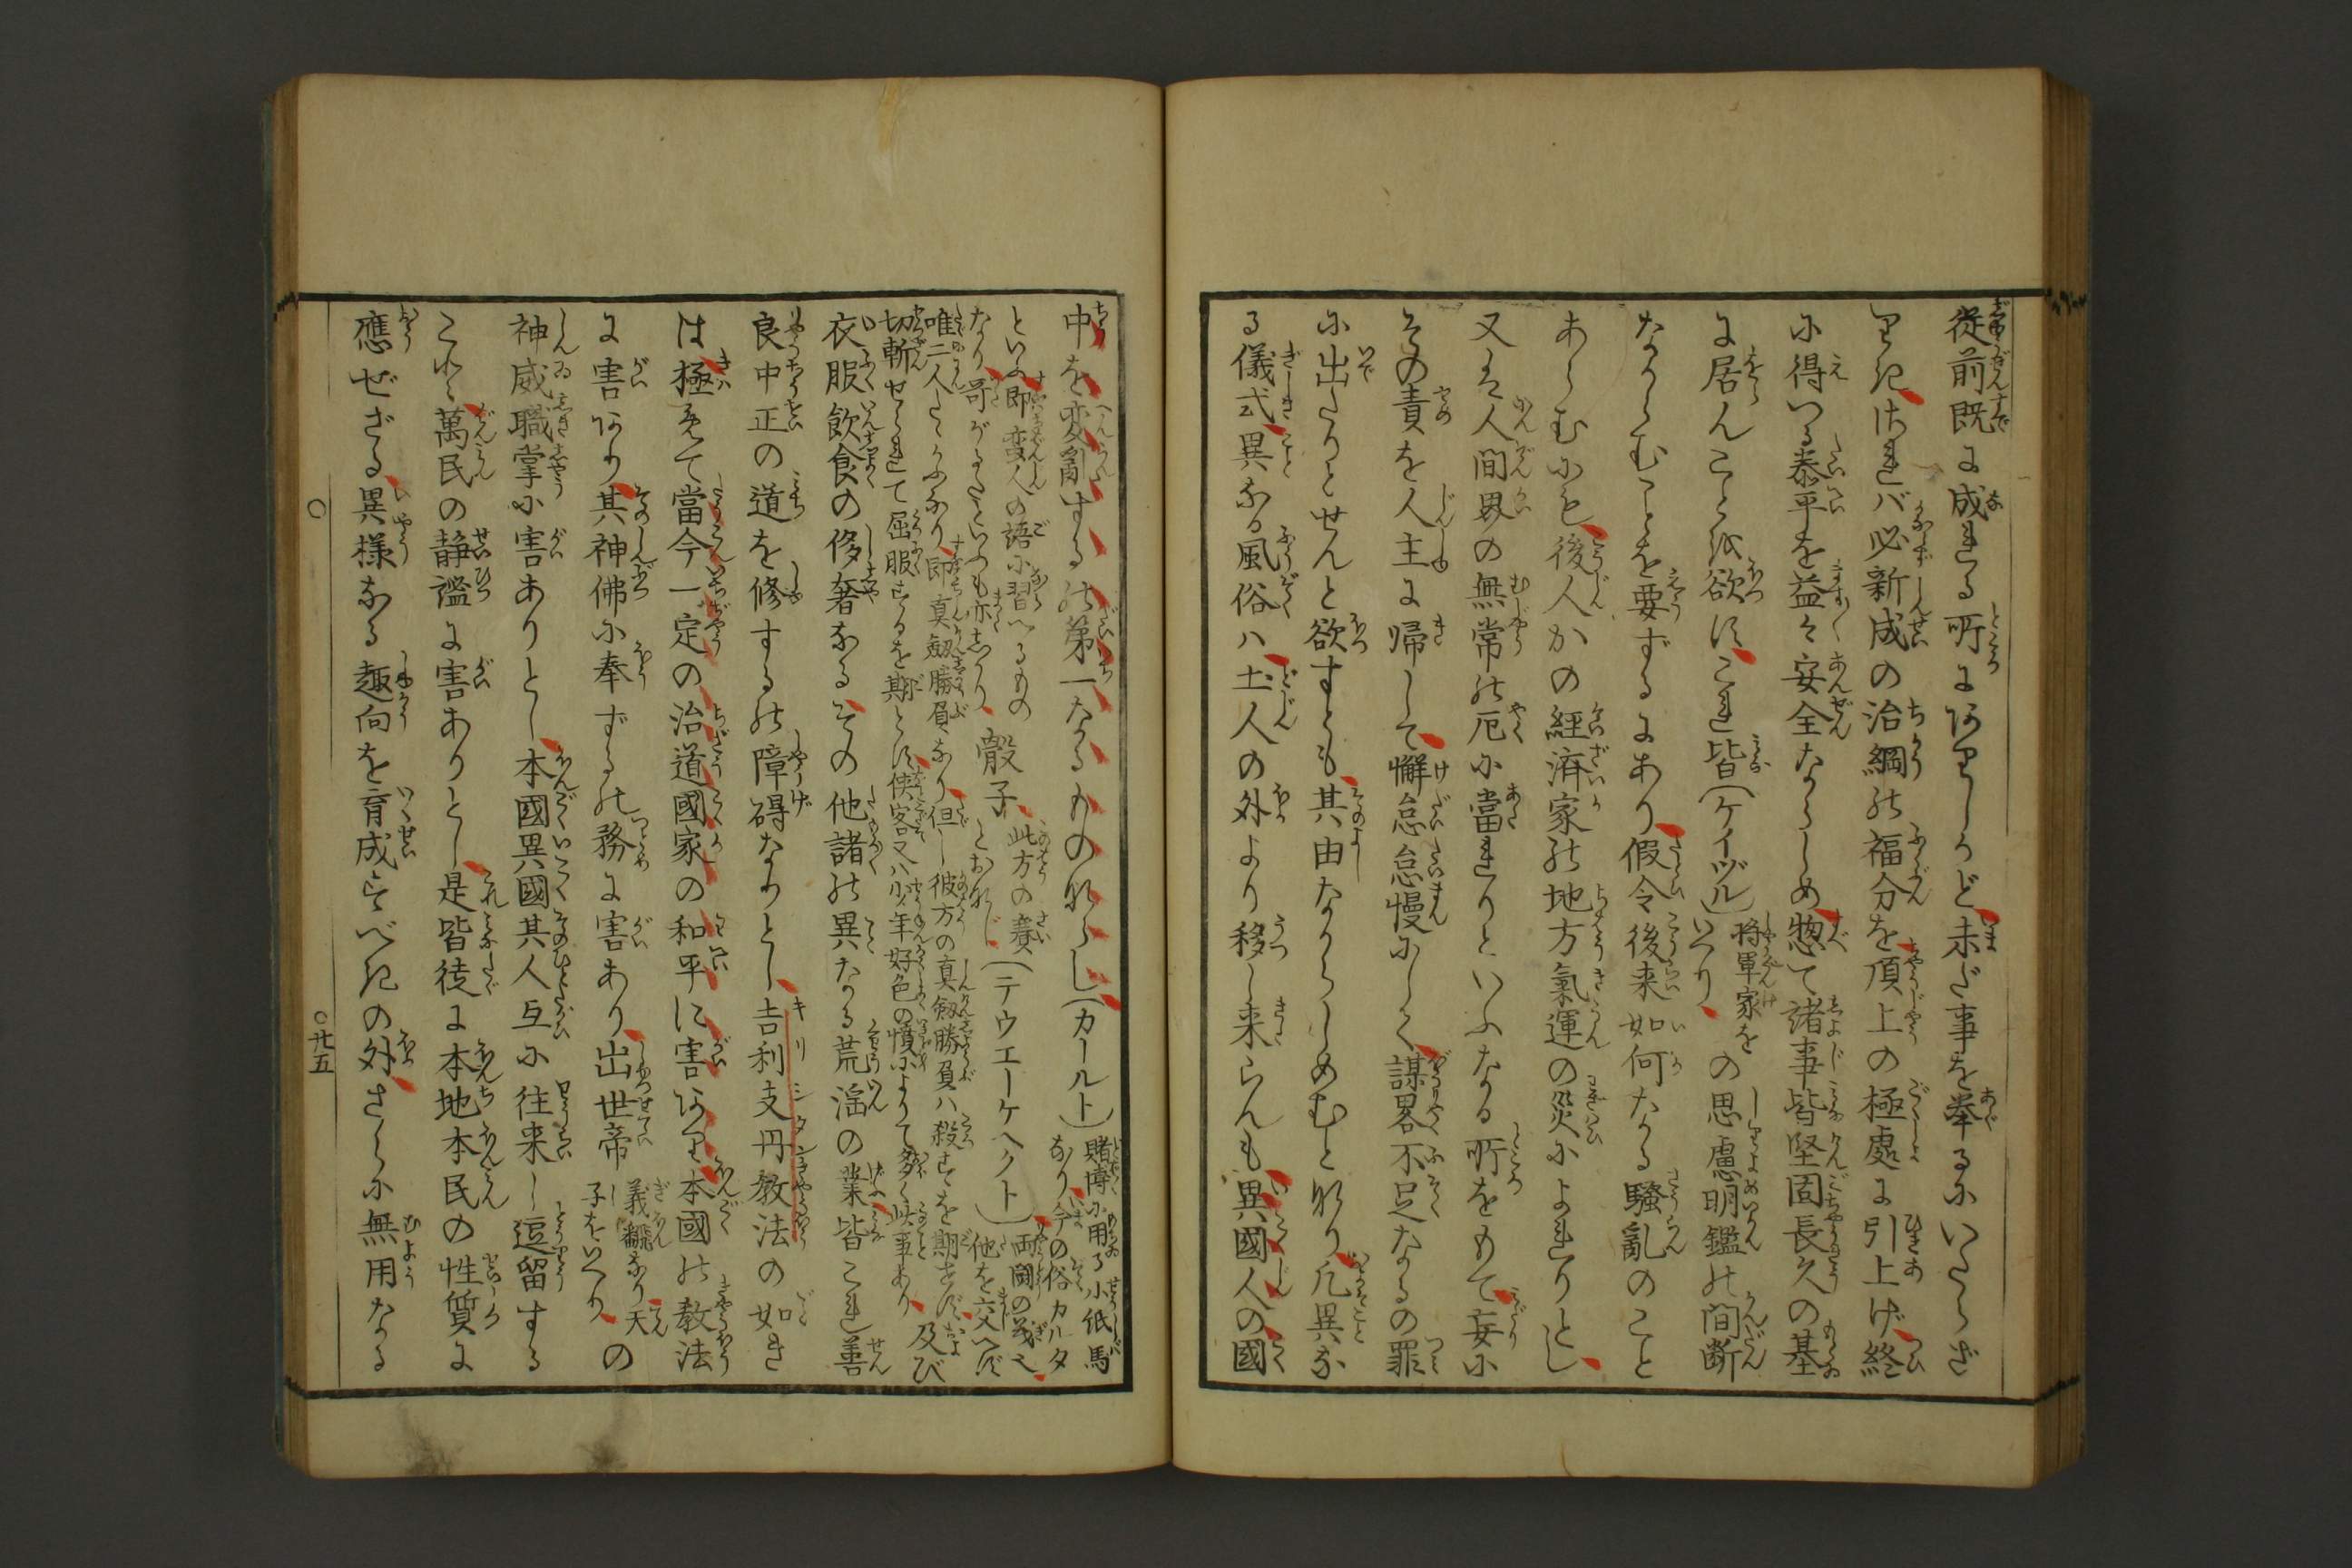 従前既に成れる所にありしかど未だ事を挙るにいたらざ
りきされバ必新成の治綱の福分を頂上の極處に引上げ終
に得つる泰平を益々安全ならしめ惣て諸事皆堅固長久の基
に居んことを欲すこれ皆(ケイヅル)将軍家を
いへりの思慮明鑑の間断
なからむことを要ずるにあり假令後来如何なる騒亂のこと
あらむにも後人かの經済家の地方氣運の災によれりとし
又は人間界の無常の厄に當れりといふなる所をもて妄に
その責を人主に帰して懈怠怠慢にしく謀畧不足なるの罪
に出たりとせんと欲すとも其由なからしめむとなり凡異な
る儀式異なる風俗ハ土人の外より移し来らんも異國人の國
中を変亂するの第一なるものならし(カールト)賭博に用る小紙馬
なり今の俗カルタ
といふ即変人の語に習へるもの
なり哥がるたといふも亦しかり骰子此方の賽
とおなじ(テウエーケヘクト)両闘の義也
他を交へず
唯二人たゝかふなり即真剱勝負なり但し彼方の真剱勝負ハ殺すを期せず
切斬せられて屈服するを期とす侠客又ハ少年好色の憤によりて多く此事あり及び
衣服飲食の侈奢なるその他諸の異なる荒滛の業皆これ善
良中正の道を修するの障碍なりとし吉利支丹教法の如き
は極めて當今一定の治道國家の和平に害あり本國の教法
に害あり其神佛に奉ずるの務に害あり出世帝義飜なり天
子をいへりの
神威職掌に害ありとし本國異國其人互に往来し逗留する
これ萬民の静謐に害ありとし是皆徒に本地本民の性質に
應ぜざる異様なる趣向を育成すべきの外さらに無用なる
○ ○廿五